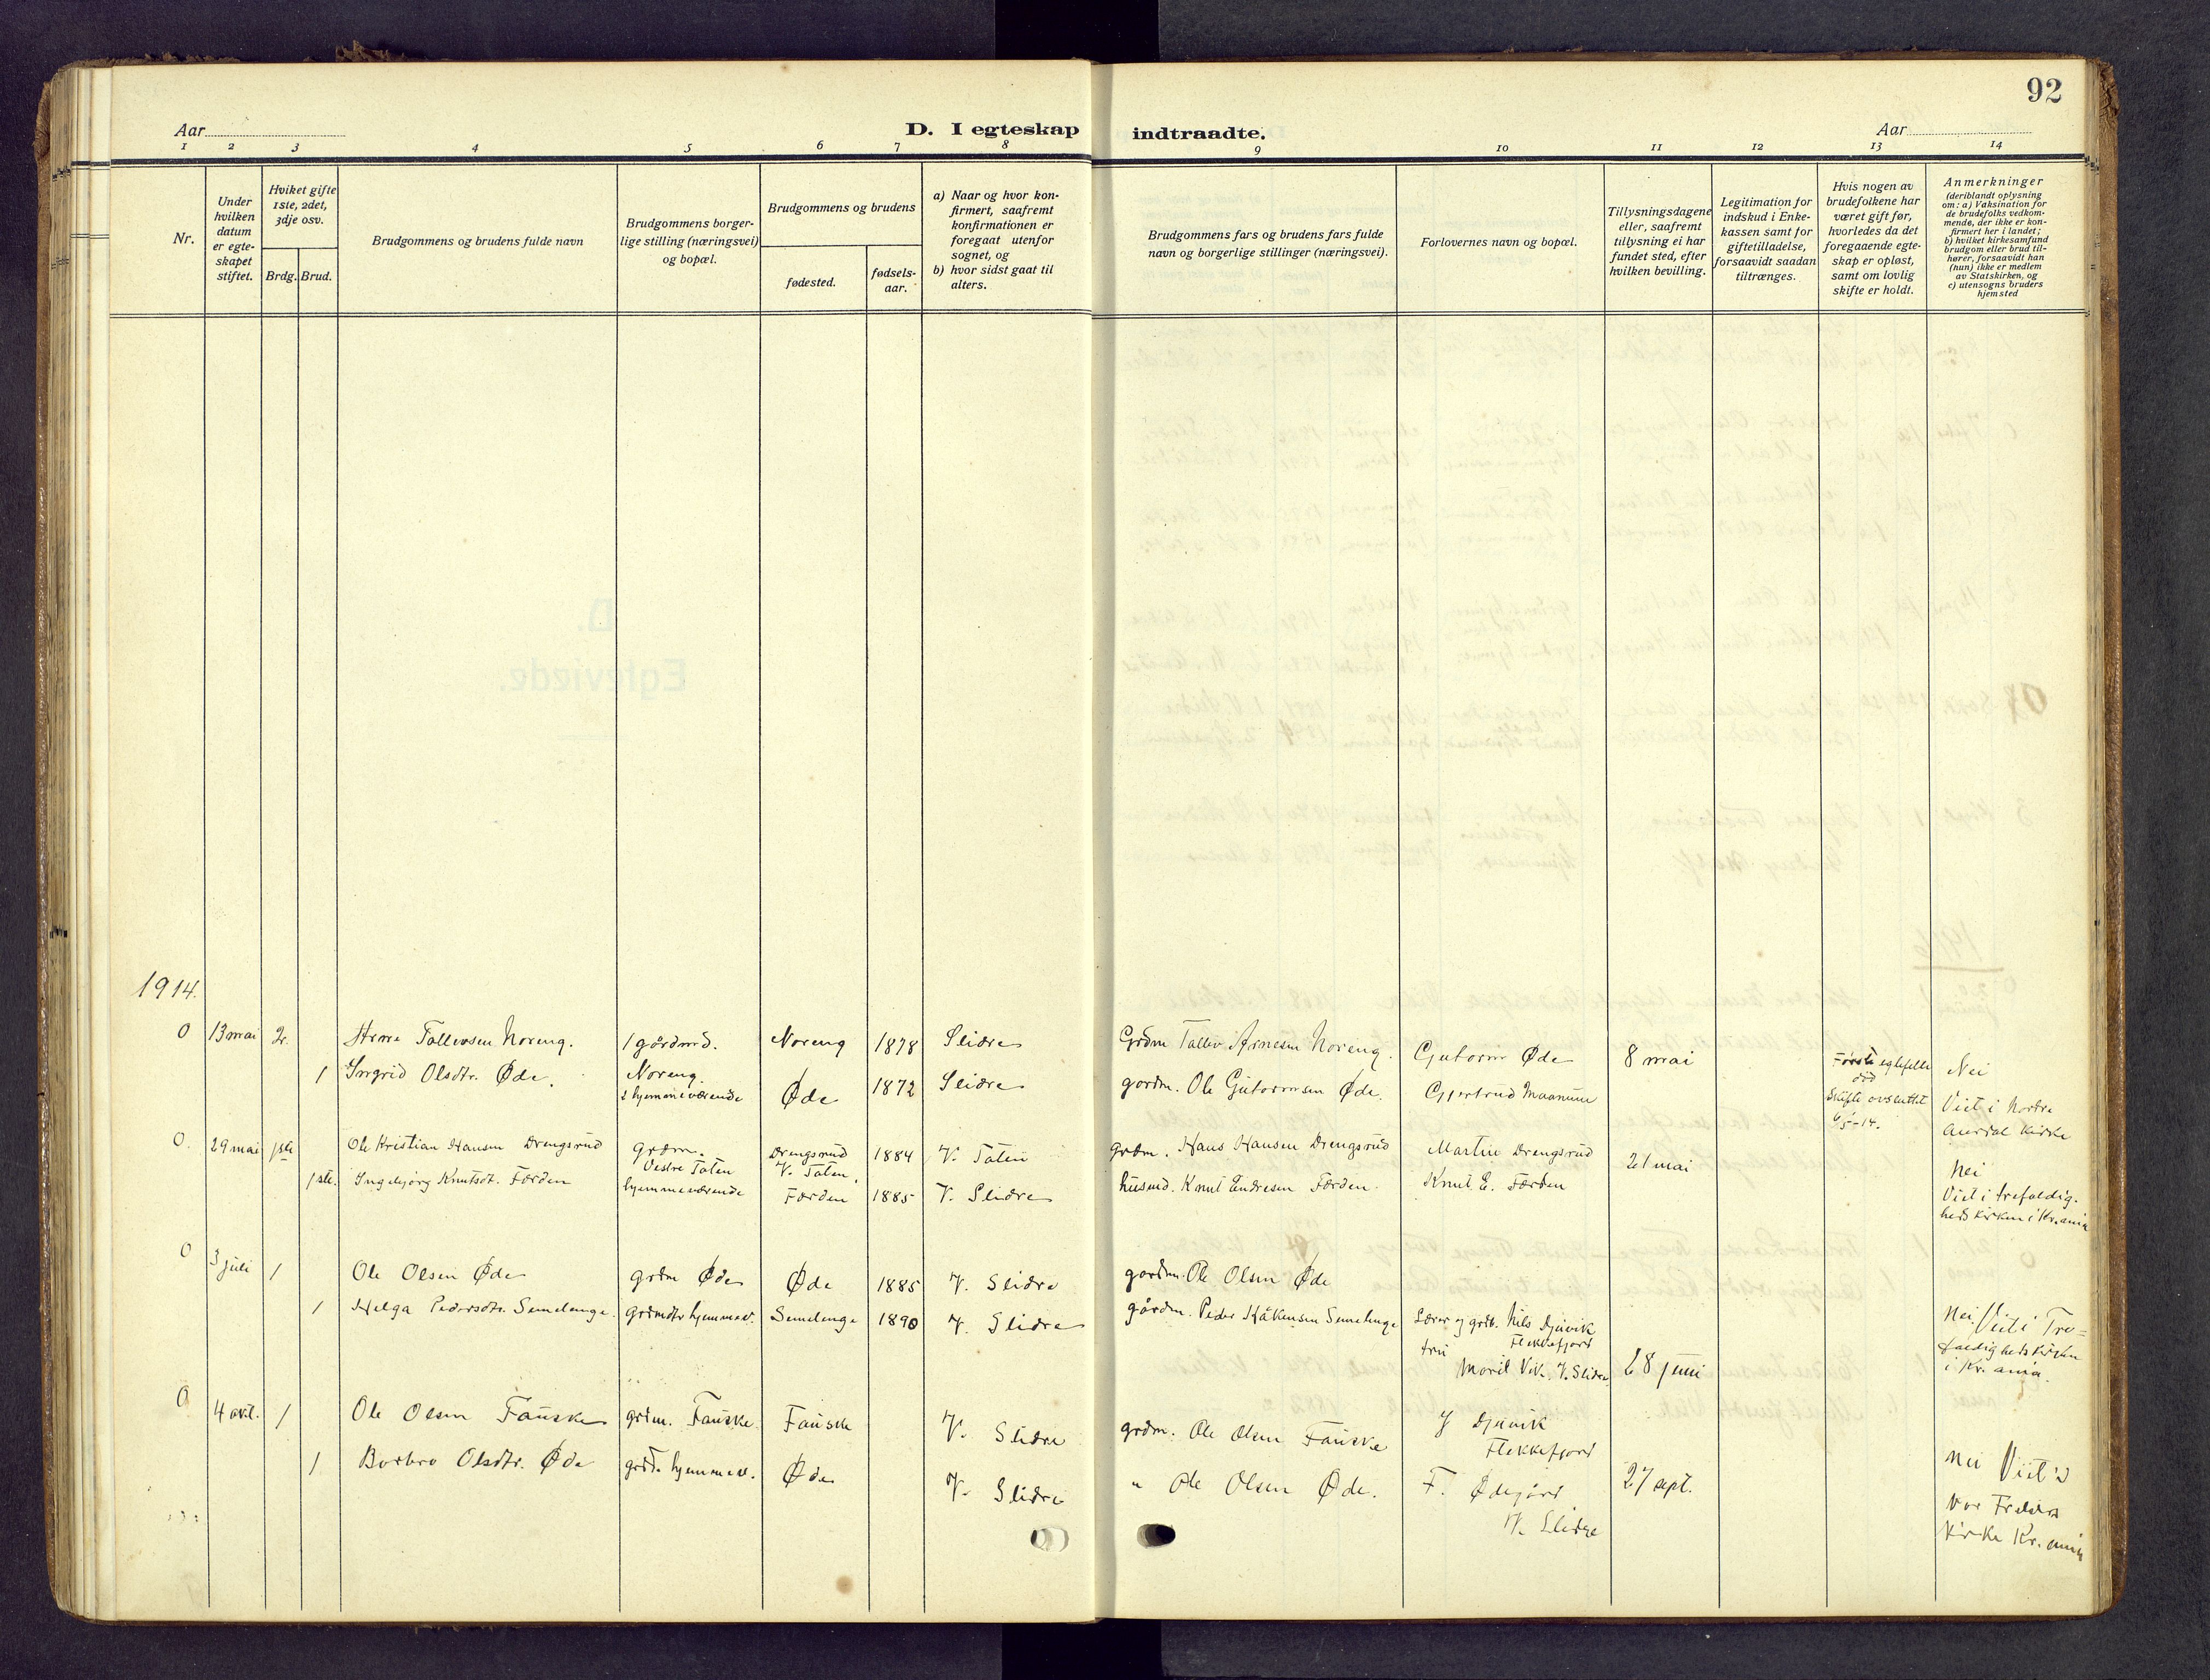 92
Aar
D. I egteskap indtraadte.
Aar
1 2 3 4 5 6 7 8 9 10 11 12 13 14
Nr.
Under
hvilken
datum
er egte-
skapet
stiftet.
Hviket gifte
1ste, 2det,
3dje osv.
Brdg. Brud.
Brudgommens og brudens fulde navn
Brudgommens borger-
lige stilling (næringsvei)
og bopæl.
Brudgommens og brudens
fødested.
fødsels-
aar.
a) Naar og hvor kon-
firmert, saafremt
konfirmationen er
foregaat utenfor
sognet, og
b) hvor sidst gaat til
alters.
Brudgommens fars og brudens fars fulde
navn og borgerlige stillinger (næringsvei).
Forlovernes navn og bopæl.
Tillysningsdagene
eller, saafremt
tillysning ei har
fundet sted, efter
hvilken bevilling.
Legitimation for
indskud i Enke-
kassen samt for
giftetilladelse,
forsaavidt saadan
tiltrænges.
Hvis nogen av
brudefolkene har
været gift før,
hvorledes da det
foregaaende egte-
skap er opløst,
samt om lovlig
skifte er holdt.
Anmerkninger
(deriblandt oplysning
om: a) Vaksination for
de brudefolks vedkom-
mende, der ikke er kon-
firmert her i landet;
b) hvilket kirkesamfund
brudgom eller brud til-
hører, forsaavidt han
(hun) ikke er medlem
av Statskirken, og
c) utensogns bruders
hjemsted
1914.
0 13 mai 2. Arne Tollevsen Noreng. 1 gårdmd. Noreng 1878 Slidre Grdm Tollev Arnesen Noreng. Gutorm Øde 8 mai Første egtefelle Nei
død
1 Ingrid Olsdtr. Øde. Noreng. Øde 1872 Slidre gordm. Ole Gutormsen Øde. Gjertrud Maanum Skifte avsluttet Viet i Nordre
2 hjemmeværende 6/5-14. Aurdal Kirke
0. 29 mai 1ste Ole Kristian Hansen Drengsrud Grdm. Drengsrud 1884 V. Toten grdm. Hans Hansen Drengsrud Martin Drengsrud 21 mai Nei
Vestre Toten V. Toten,
1ste. Ingebjørg Knutsdt. Førden hjemmeværende Førden 1885 V. Slidre husmd. Knut Endresen Førden. Knut E. Førden Viet i trefoldig.
hedskirken i Kr.ania
0 3 juli 1 Ole Olsen Øde grdm Øde Øde 1885 V. Slidre gordm. Ole Olsen Øde
1 Helga Pedersdtr. Semelenge. grdmdtr hjemmev. Semelenge 1890 V. Slidre gårdm. Peder Håkensen Semelenge Lærer og grdb. Nils Djuvik Nei. Viet i Tre=
Flekkefjord foldighedskirken
Maril Vik, V. Slidre 28 juni i Kr. ania.
0 4 okt. 1 Ole Olsen Fauske grdm. Fauske. Fauske V. Slidre grdm. Ole Olsen Fauske Djuvik
Flekkefjord
1 Borbro Olsdtr. Øde hjemmev. Øde V. Slidre " Ole Olsen Øde. F. Ødegård 27 sept. Nei Viet i
V. Slidre Vor Frelsers
Kirke Kr. ania